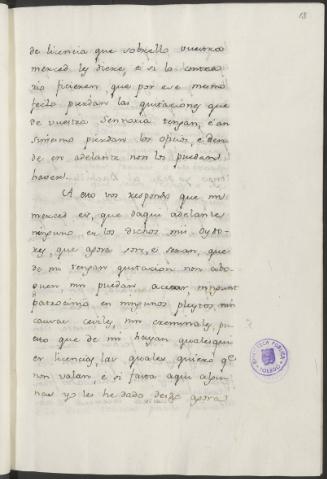 18
de licencia que sobrello vuestra
merced les diere, e si lo contra
rio ficieren, que por ese mesmo
fecho pierdan las quitaciones que
de vuestra Sennoria tengan, e an
simesmo pierdan los oficios, e den
de en adelante non los puedan
haver.
A esto vos respondo que mi
merced es, que daqui adelante
ninguno en los dichos mis Oydo
res, que agora son, e seran, que
de mi tengan quitacion non abo
guen, nin puedan aceptar, nin
patrocinio en ningunos pleytos, nin
causas ceviles, nin creminales, pu
esto que de mi hayan qualesqui
er licencias, las quales quiero qe
non valan, e si fasta aqui algu
nas yo les he dado desde agora
BIBLIOTECA PUBLICA
TOLEDO